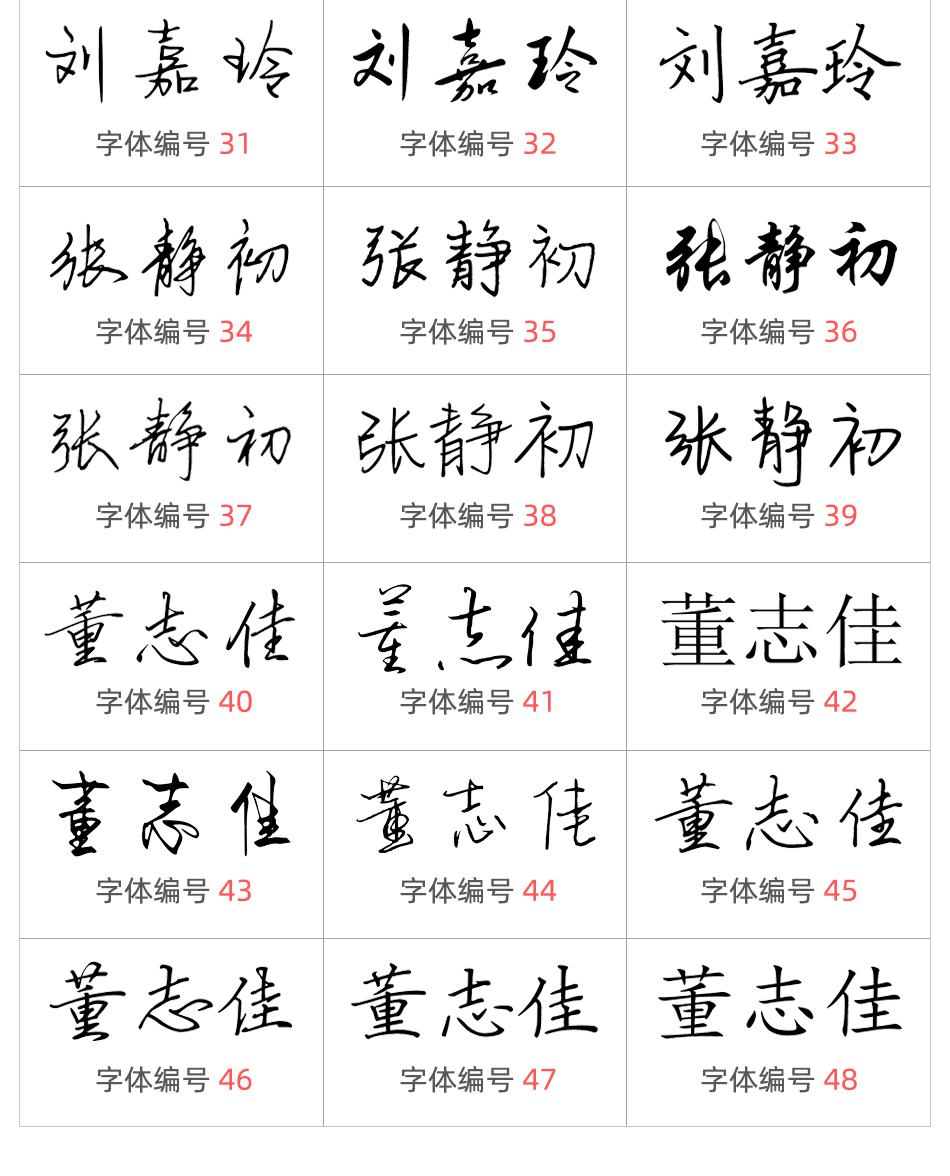 刘嘉玲 刘嘉玲 刘嘉玲
字体编号 31 字体编号 32 字体编号 33
张静初 张静初 张静初
字体编号 34 字体编号 35 字体编号 36
张静初 张静初 张静初
字体编号 37 字体编号 38 字体编号 39
董志佳 董志佳 董志佳
字体编号 40 字体编号 41 字体编号 42
董志佳 董志佳 董志佳
字体编号 43 字体编号 44 字体编号 45
董志佳 董志佳 董志佳
字体编号 46 字体编号 47 字体编号 48